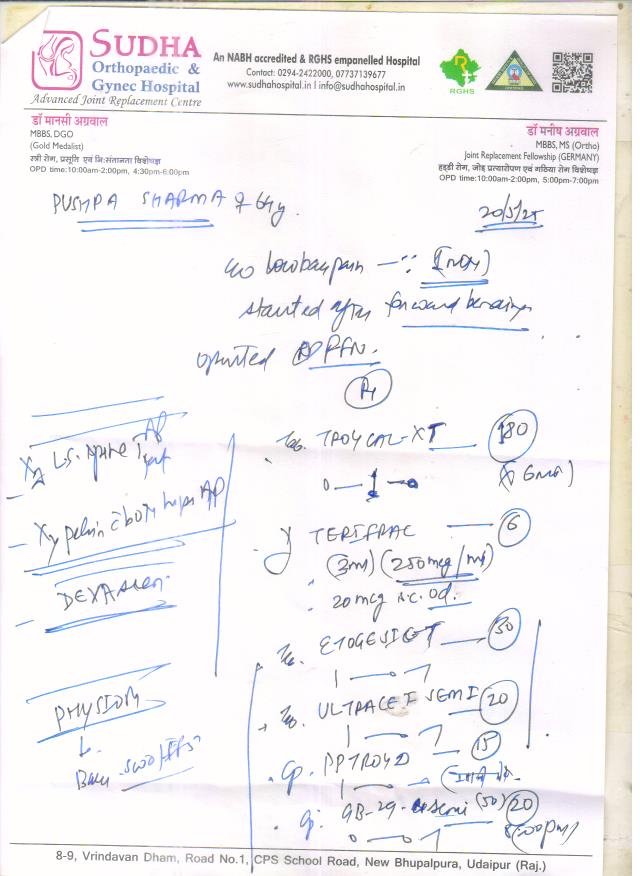 SUDHA
Orthopaedic &
Gynec Hospital
Advanced Joint Replacement Centre
An NABH accredited & RGHS empanelled Hospital
Contact: 0294-2422000, 07737139677
www.sudhahospital.in | info@sudhahospital.in
RGHS
डॉ मानसी अग्रवाल
MBBS, DGO
(Gold Medalist)
स्त्री रोग, प्रसूति एवं निःसंतानता विशेषज्ञ
OPD time:10:00am-2:00pm, 4:30pm-6:00pm
डॉ मनीष अग्रवाल
MBBS, MS (Ortho)
Joint Replacement Fellowship (GERMANY)
हड्डी रोग, जोड़ प्रत्यारोपण एवं गठिया रोग विशेषज्ञ
OPD time:10:00am-2:00pm, 5:00pm-7:00pm
PUSHPA SHARMA
20/5/25
started after forward bending
operated PFN.
TROYCAL-XT 180
0—1—0
TERIFRAC 6
(3ml) (250mcg/ml)
20 mcg s.c. od.
30
1—1
ULTRACET SEMI 20
1—1
15
1
GB-29 (50) 20
0—0—1 8:00pm
X-ray L.S. spine AP
X-ray pelvis c both hips AP
DEXA scan
PHYSIO
8-9, Vrindavan Dham, Road No.1, CPS School Road, New Bhupalpura, Udaipur (Raj.)